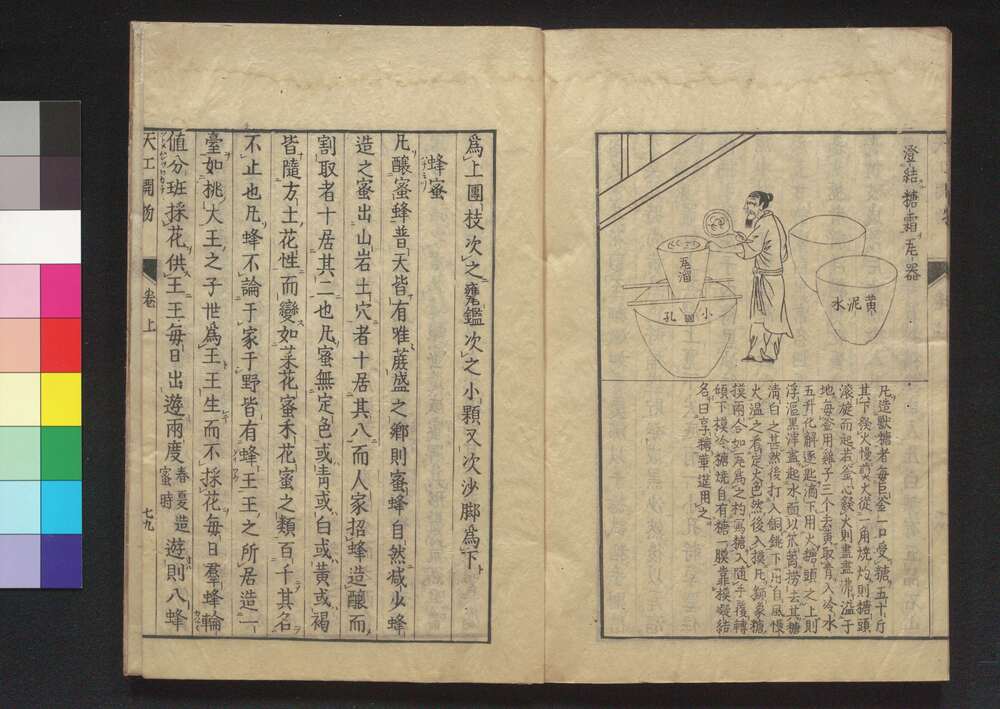 澄結糖霜瓦器
黄泥水
瓦溜
小圓孔
凡造獸糖者每巨釜一口受糖五十斤
其下發火慢煎火從一角燒灼則糖頭
滾旋而起若釜心發火則盡盡沸溢于
地每釜用雞子三个去黄取青入冷水
五升化解逐匙滴下用火糖頭之上則
浮漚黑滓盡起水面以笊篱撈去其糖
清白之甚然後打入銅銚下用自風慢
火温之看定火色然後入摸凡獅象糖
摸兩合如瓦爲之杓寫糖入随手覆轉
傾下摸冷糖燒自有糖一膜靠摸凝結
名曰享糖華筵用之
爲上團枝次之甕鑑次之小顆又次沙脚爲下
蜂蜜
凡釀蜜蜂普天皆有唯蔗盛之鄉則蜜蜂自然減少蜂
造之蜜出山岩土穴者十居其八而人家招蜂造釀而
割取者十居其二也凡蜜無定色或青或白或黄或褐
皆隨方土花性而變如菜花蜜禾花蜜之類百千其名
不止也凡蜂不論于家于野皆有蜂王王之所居造一
臺如桃大王之子世爲王王生而不採花每日羣蜂輪
值分班採花供王王每日出遊兩度春夏造蜜時遊則八蜂
天工開物 卷上 七九